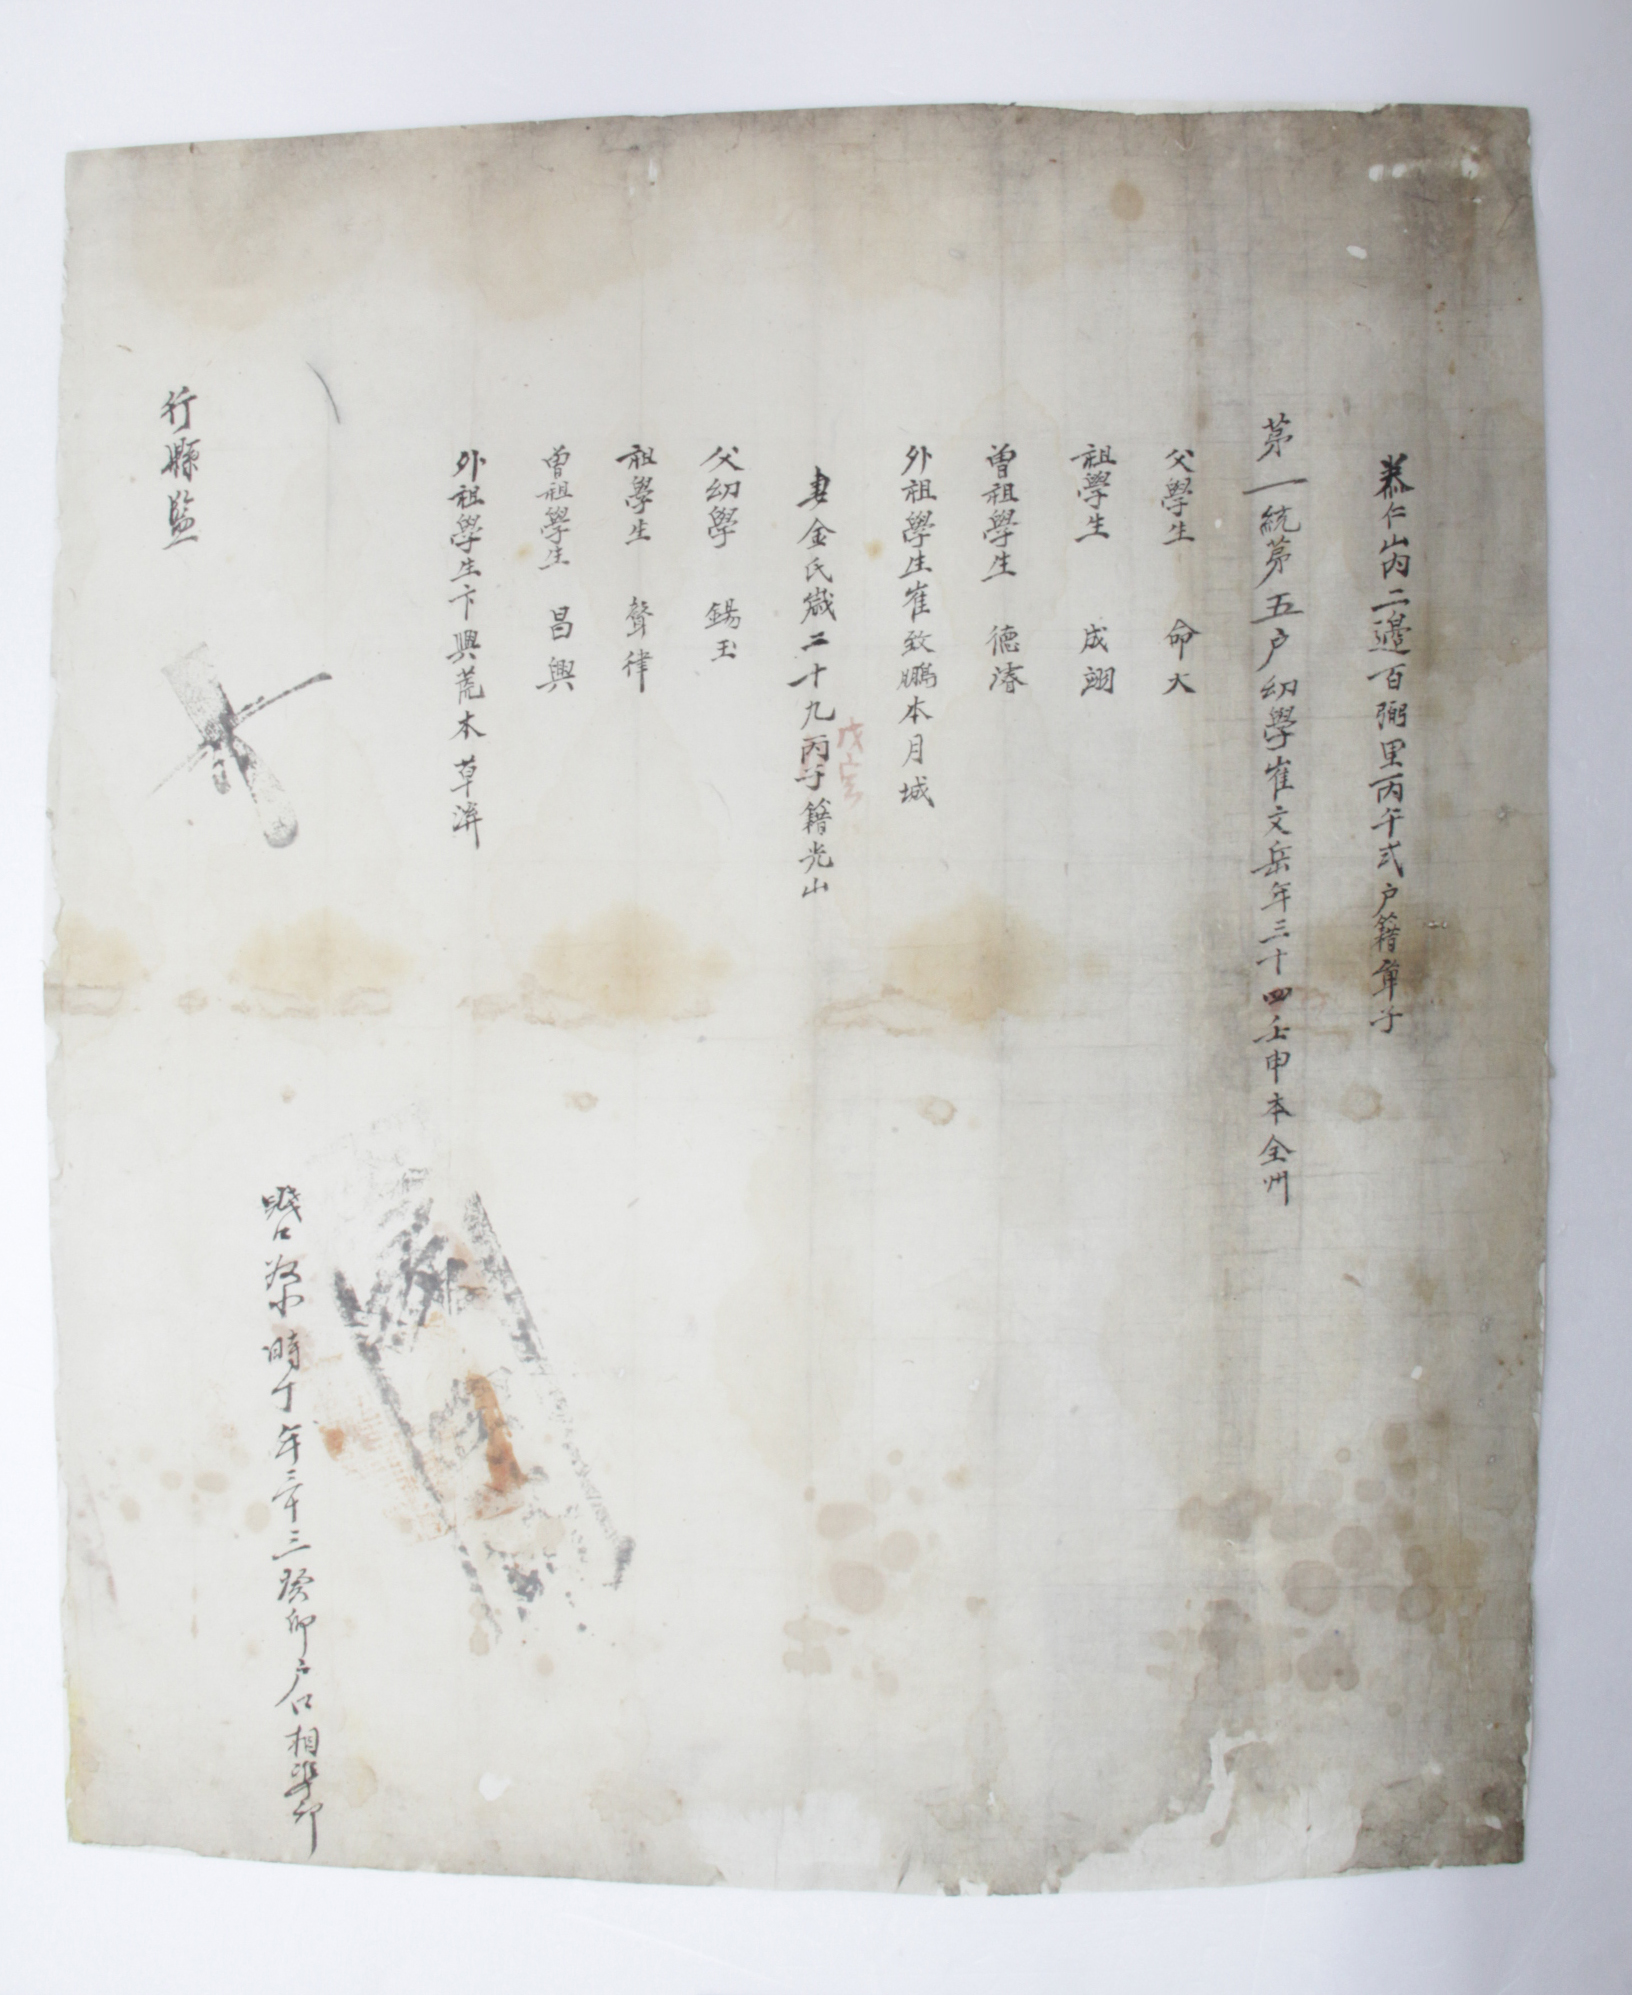 泰仁山內二邊百弼里丙午式戶籍單子
第一統第五戶幼學崔文岳年三十四壬申本全州
父學生 命大
祖學生 成翊
曾祖學生 德濬
外祖學生崔致鵬本月城
妻金氏歲二十九丙子籍光山
戊寅
父幼學 錫玉
祖學生 聲律
曾祖學生 昌興
外祖學生卞興荒本草溪
賤口 時丁年三十三癸卯戶口相準印
行縣監